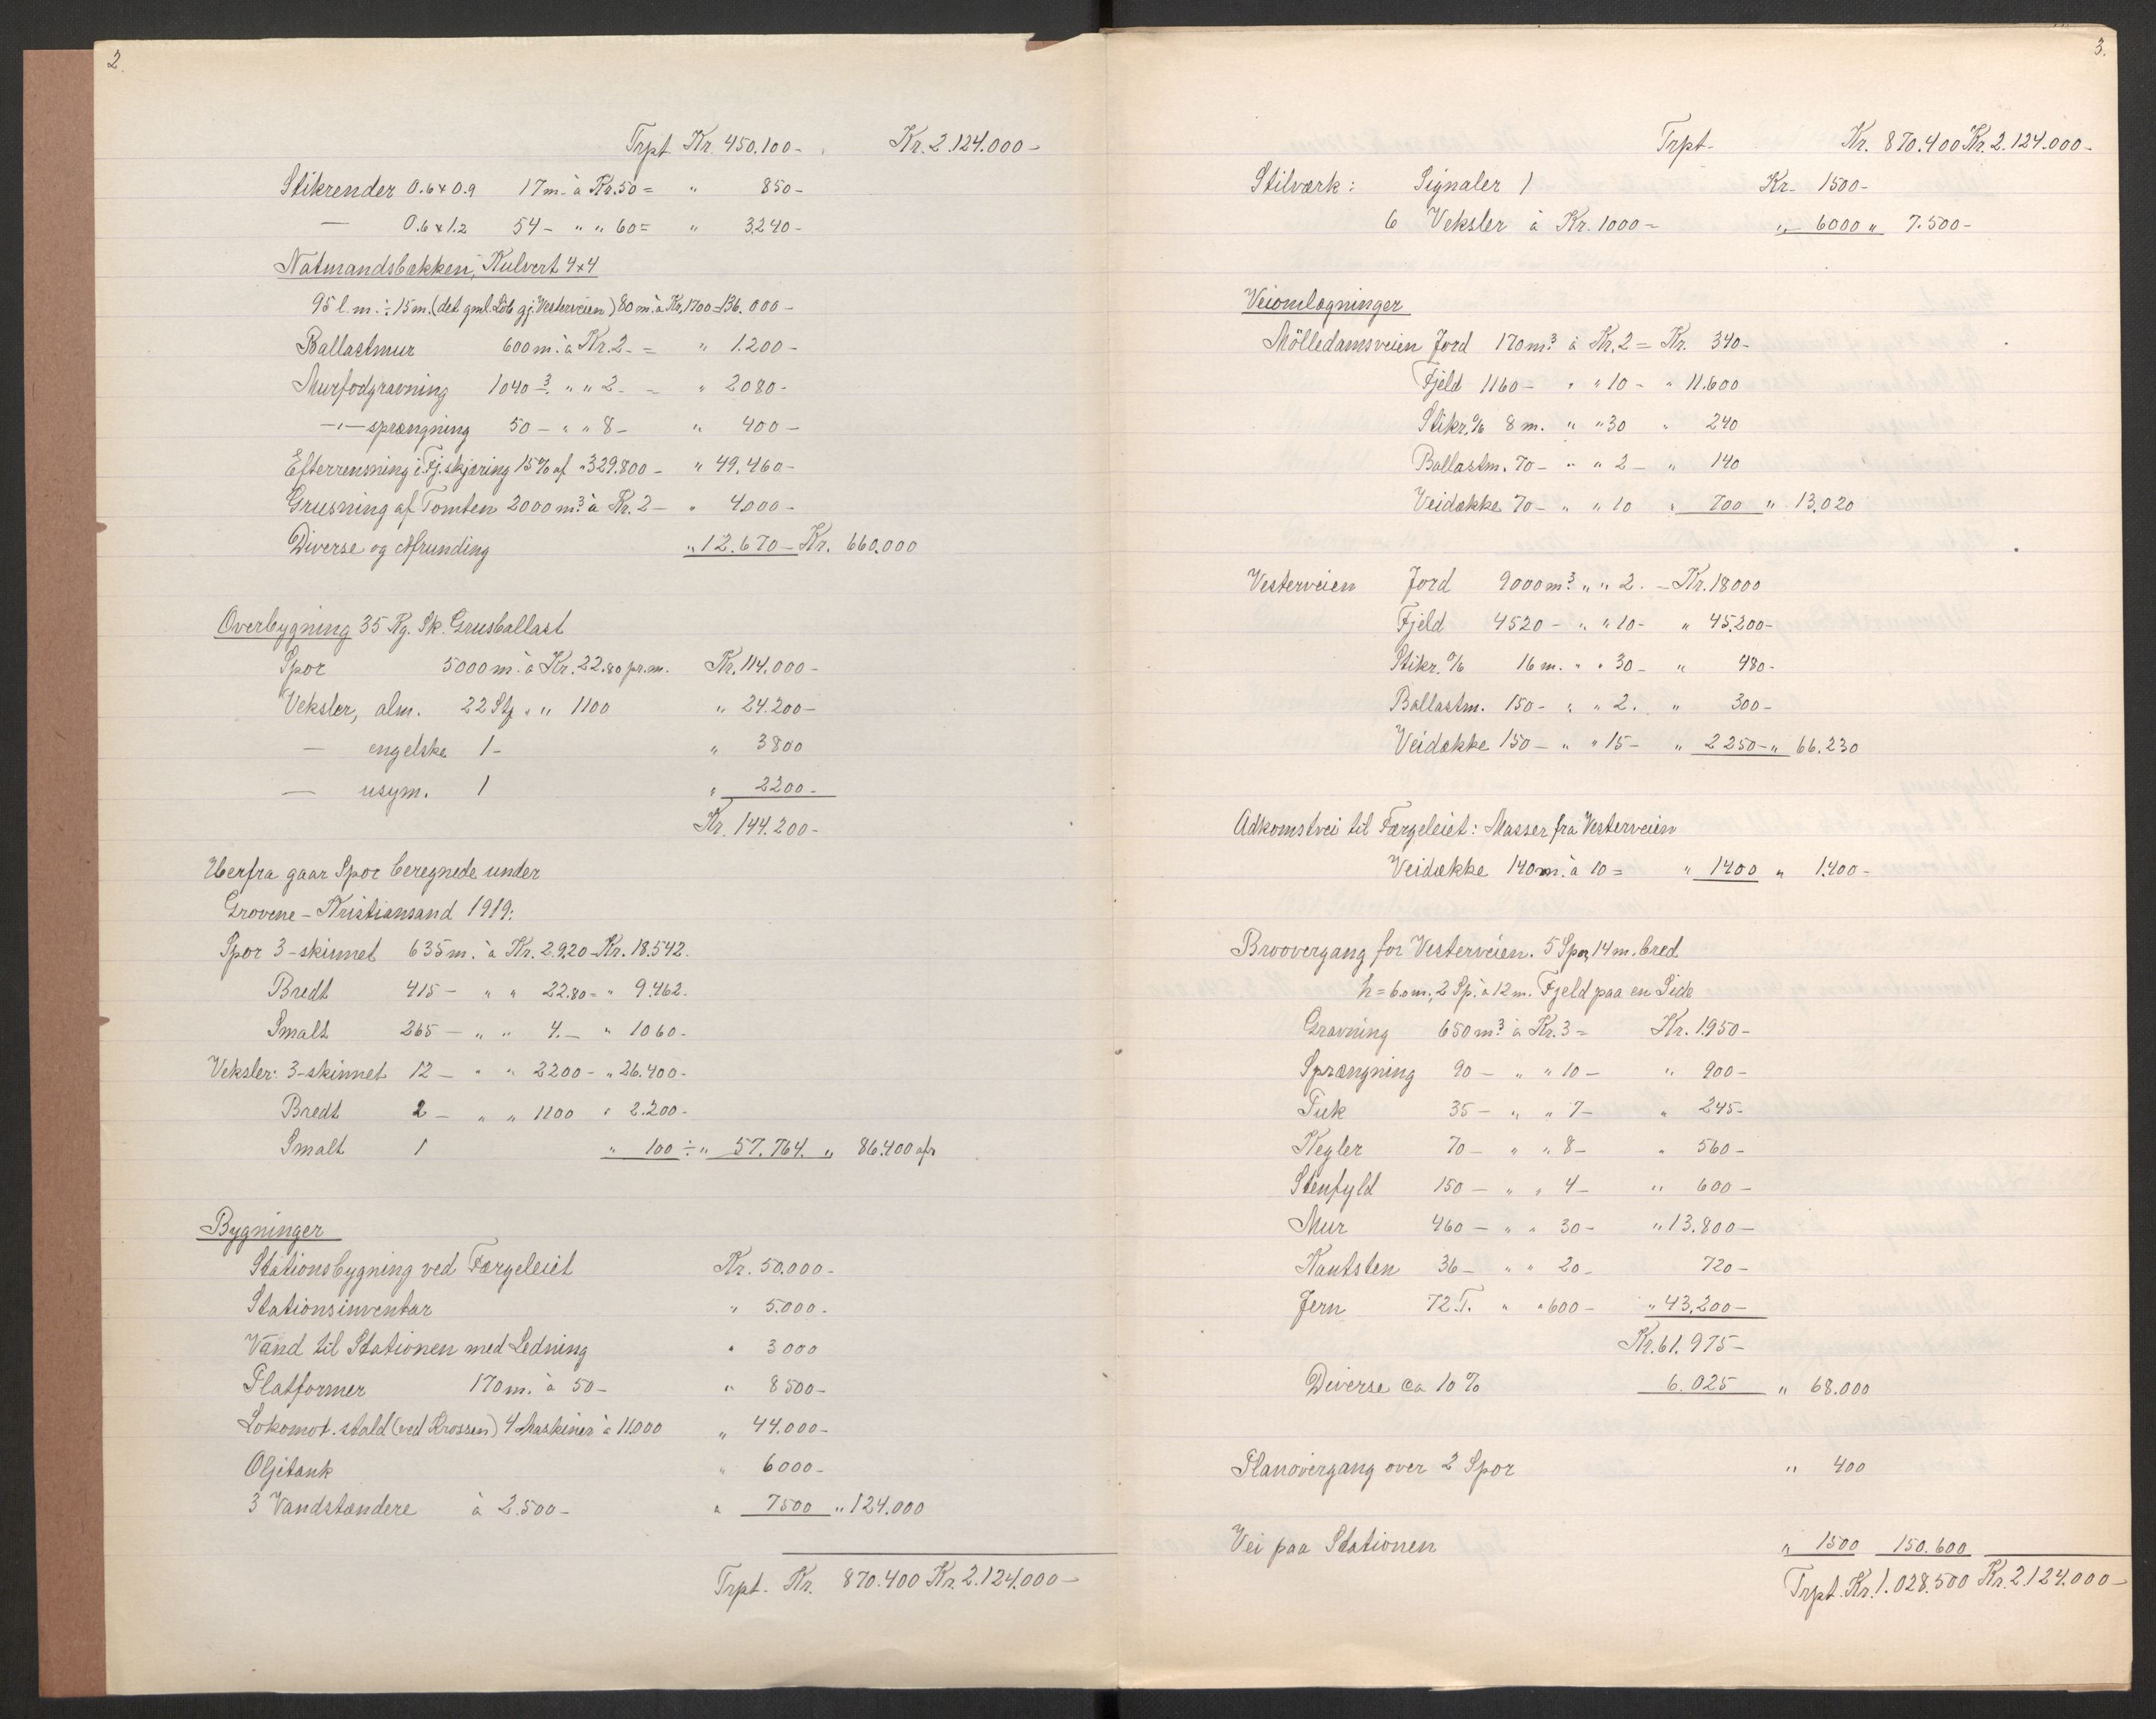 2.
Trpt. Kr. 450.100- Kr. 2.124.000-
Stikrender 0.6 x 0.9 17 m. à Kr. 50 = " 850-
— 0.6 x 1.2 54 - " " 60 = " 3240-
Natmandsbækken, Kulvert 4x4
95 l. m. ÷ 15 m. (det gml. Löb gj. Vesterveien) 80 m. à Kr. 1700 = 136.000-
Ballastmur 600 m. à Kr. 2.- = " 1.200-
Murfodgravning 1040 - 3 " " 2.- - " 2080.-
—"— sprængning 50 - " " 8 - " 400-
Efterrensning i Fj.skjæring 15% af " 329.800 - " 49.460-
Grusning af Tomten 2000 m3 à Kr. 2 - " 4.000-
Diverse og Afrunding " 12.670 - Kr. 660.000
Overbygning 35 Kg. Sk. Grusballast
Spor 5000 m. à Kr. 22.80 pr. m. Kr. 114.000-
Veksler, alm. 22 Stg " " 1100 " 24.200-
— engelske 1- " 3800
— usym. 1 " 2200-
Kr. 144.200-
Herfra gaar Spor beregnede under
Grovene - Kristiansand 1919:
Spor 3-skinnet 635 m. à Kr. 29.20 - Kr. 18.542.
Bredt 415 - " " 22.80 = " 9.462.
Smalt 265 - " " 4.- " 1060-
Veksler: 3-skinnet 12 - " " 2200- " 26.400-
Bredt 2 - " " 1100 " 2.200-
Smalt 1 " 100 ÷ " 57.764. " 86.400 afr.
Bygninger
Stationsbygning ved Færgeleiet Kr. 50.000-
Stationsinventar " 5.000-
Vand til Stationen med Ledning " 3000
Platformer 170 m. à 50- " 8500-
Lokomot. stald (ved Krossen) 4 Maskiner à 11.000 " 44.000-
Oljetank " 6000-
3 Vandstændere à 2.500- " 7500 " 124.000
Trpt. Kr. 870.400 Kr. 2.124.000-
3.
Trpt- Kr. 870.400 Kr. 2.124.000-
Stilværk: Signaler 1 Kr- 1500-
6 Veksler à Kr. 1000 = " 6000 " 7.500-
Veiomlægninger
Mölledamsveien Jord 170 m3 à Kr. 2 = Kr. 340-
Fjeld 1160 - " " 10 - " 11.600
Stikr. % 8 m. " " 30 " 240
Ballastm. 70 - " " 2 - " 140
Veidække 70 - " " 10 " 700 " 13.020
Vesterveien Jord 9000 m3 " " 2. - Kr. 18000
Fjeld 4520 - " " 10 - " 45.200-
Stikr. % 16 m. " " 30 - " 480-
Ballastm. 150 - " " 2. " 300-
Veidække 150 - " " 15 - " 2250- " 66.230
Adkomstvei til Færgeleiet: Masser fra Vesterveien
Veidække 140 m. à 10 = " 1400 " 1.400-
Broovergang for Vesterveien. 5 Spor, 14 m. bred
h = 6.0 m., 2 Sp. à 12 m. Fjeld paa en Side
Gravning 650 m3 à Kr. 3 = Kr. 1.950-
Sprængning 90 - " " 10 - " 900-
Puk 35 - " " 7 - " 245-
Kegler 70 - " " 8 - " 560-
Stenfyld 150 - " " 4 - " 600-
Mur 460 - " " 30 - " 13.800-
Kantsten 36 - " " 20 - 720-
Jern 72 T. " " 600 - " 43.200-
Kr. 61.975-
Diverse ca 10 % 6.025 " 68.000
Planovergang over 2 Spor " 400
Vei paa Stationen " 1500 150.600
Trpt. Kr. 1.028.500 Kr. 2.124.000-